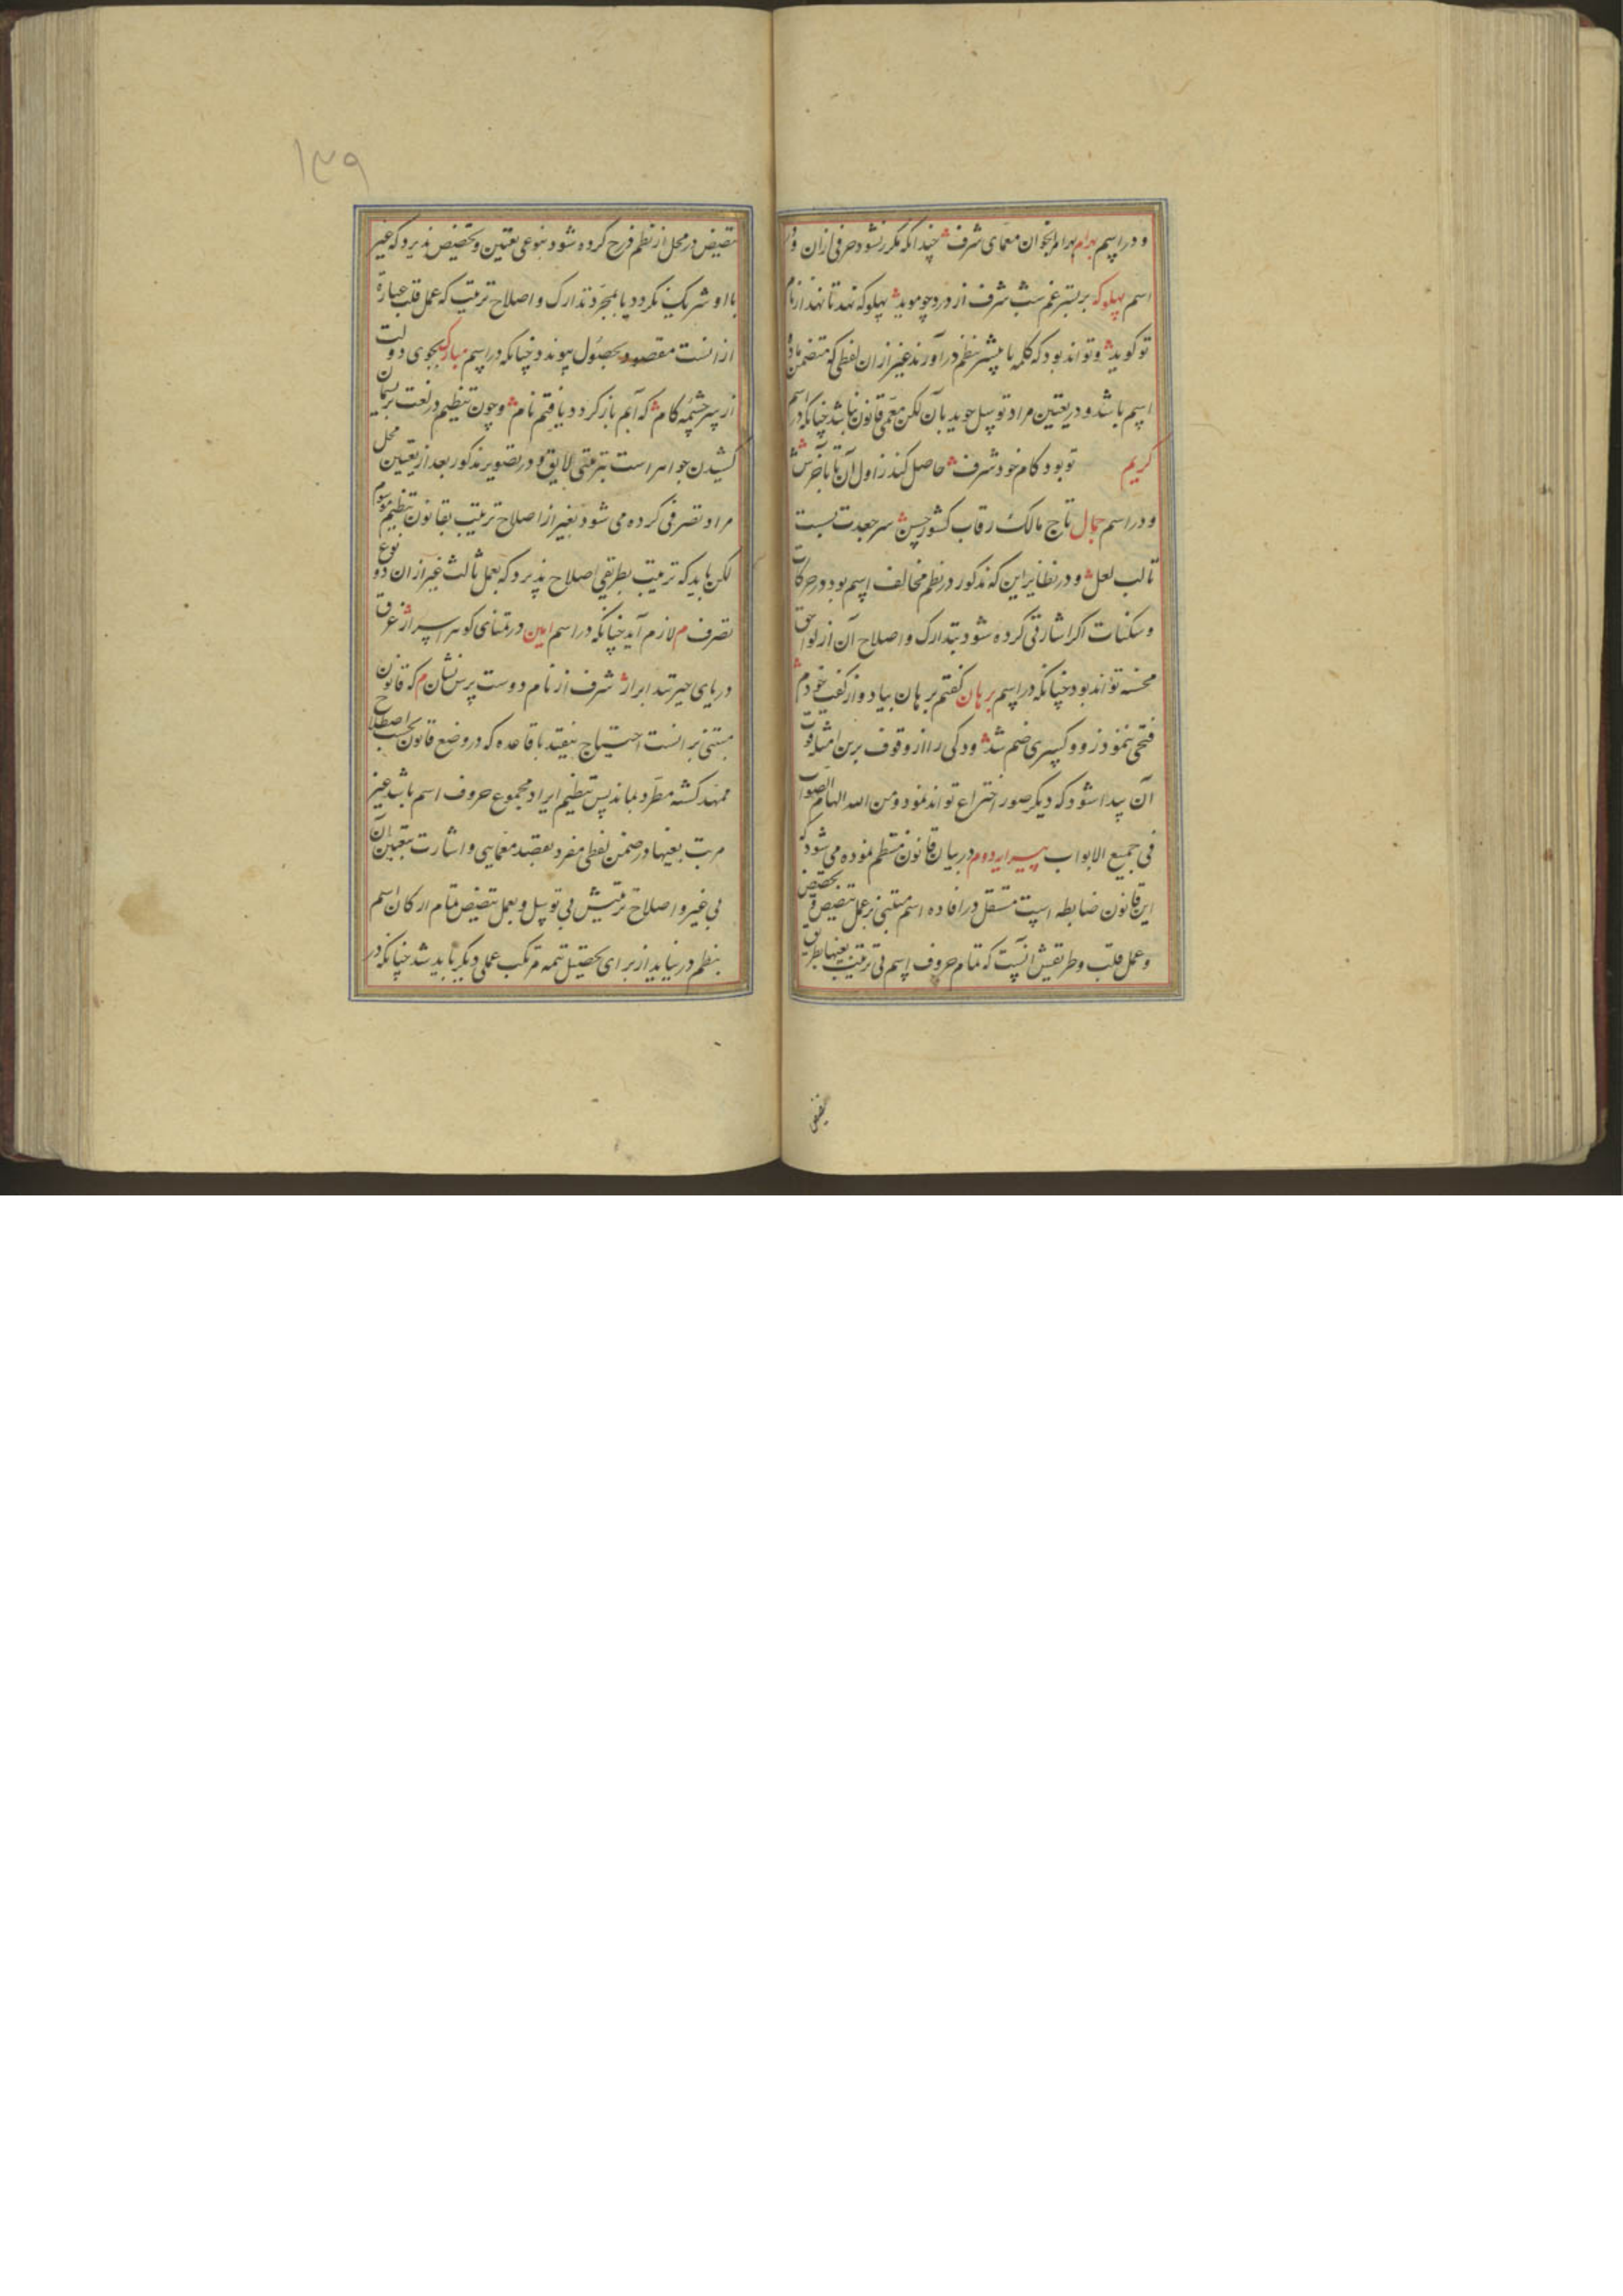 و در اسم بهرام بهرام بخوان معمای شرف چندانکه مکرر نشود حرفی ازان و در
اسم پهلوکه بر بستر غم شب شرف از درد چو موید پهلو که نهد تا نهد از نام
تو گوید و تواند بود که کلمه یا بیشتر بنظم در آورند غیر از ان لفظی که متضمن ماده
اسم باشد و در تعیین مراد توسل جوید بآن لکن معمی قانون نباشد چنانکه در اسم
کریم تو بود کام خود شرف حاصل کند ز اول آن تا بآخرش
و در اسم جمال تاج مالک رقاب کشور حسن سر جعدت بست
تا لب لعل و در نظایر این که مذکور در نظم مخالف اسم بود در حرکات
و سکنات اگر اشارتی کرده شود بتدارک و اصلاح آن از لواحق
محسنه تواند بود چنانکه در اسم برهان گفتم برهان بیاد و از گفت خودم
فتحی بنمود ز و و کسری ضم شد و ذکی را از وقوف برین امثله قوت
آن پیدا شود که دیگر صور اختراع تواند نمود و من الله الهام الصواب
فی جمیع الابواب پیرایه دوم در بیان قانون منتظم نموده می شود که
این قانون ضابطه ایست مستقل در افاده اسم مبتنی بر عمل تنصیص و تخصیص
و عمل قلب و طریقش آنست که تمام حروف اسم بی ترتیب بعینها بطریق
تنصیص
۱۳۹
تنصیص در محل از نظم درج کرده شود بنوعی تعیین و تخصیص پذیرد که غیر
با او شریک نگردد یا بمجرد تدارک و اصلاح ترتیب که عمل قلب عبارة
از انست مقصود بحصول پیوندد چنانکه در اسم مبارک بجوی دولت
از سر چشمه کام که آبم باز کردد یافتم نام و چون تنظیم در لغت بریسمان
کشیدن جواهر است بترتیبی لایق و در تصویر مذکور بعد از تعیین محل
مراد تصرفی کرده می شود بغیر از اصلاح ترتیب بقانون تنظیم موسوم
لکن باید که ترتیب بطریقی اصلاح پذیرد که بعمل ثالث غیر از ان دو نوع
تصرف م لازم آید چنانکه در اسم امین در تمنای گوهر اسرار غرق
دریای حیرتند ابرار شرف از نام دوست پرس نشان م که قانون
مبتنی بر انست احتیاج نیفتد با قاعده که در وضع قانون بحسب اصطلاح
ممهد گشته مطرد بماند پس تنظیم ایراد مجموع حروف اسم باشد غیر
مرتب بعینها در ضمن لفظی مفرد بقصد معمایی و اشارت بتعیین آن
بی غیر و اصلاح ترتیبش بی توسل و بعمل تنصیص تمام ارکان اسم
بنظم در نیاید از برای تحصیل تتمه مرتکب عملی دیگر باید شد چنانکه در